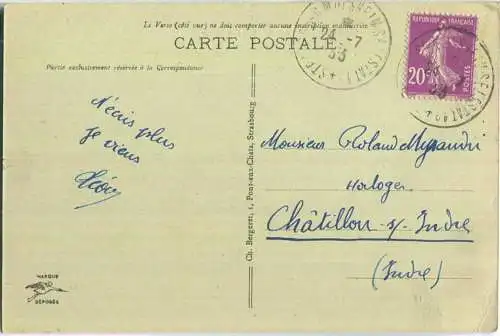 Le Verso (côté vue) ne doit comporter aucune inscription manuscrite
CARTE POSTALE
Partie exclusivement réservée à la Correspondance
24 -7
35
REPUBLIQUE FRANÇAISE
20c
POSTES
N'écris plus
je viens
Monsieur Roland
Horloger
Châtillon s/ Indre
(Indre)
Ch. Bergeret, 1, Pont-aux-Chats, Strasbourg
MARQUE
DÉPOSÉE